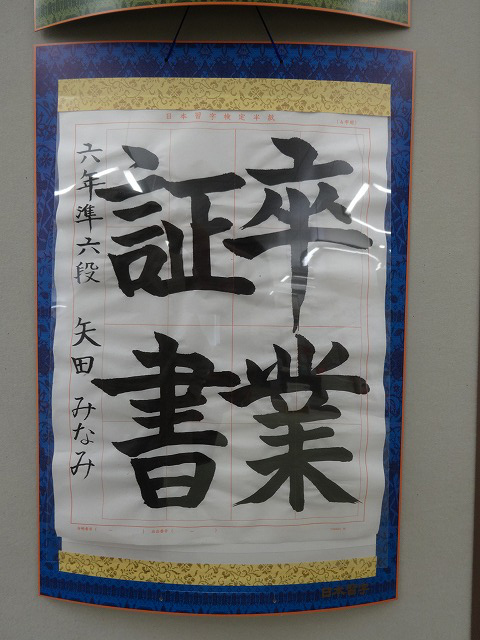 日本習字検定半紙
卒業
証書
六年準六段 矢田みなみ
日本習字